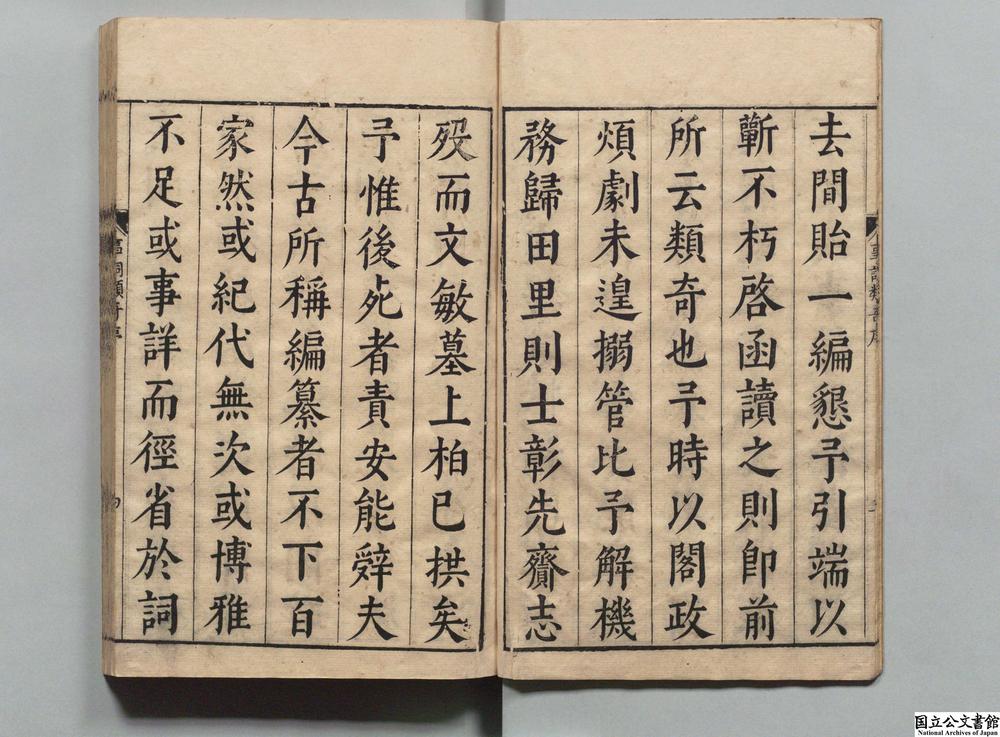 去間貽一編懇予引端以
蘄不朽啓函讀之則卽前
所云類奇也予時以閣政
煩劇未遑搦管比予解機
務歸田里則士彰先齎志
歿而文敏墓上柏已拱矣
予惟後死者責安能辭夫
今古所稱編纂者不下百
家然或紀代無次或博雅
不足或事詳而徑省於詞
事詞類奇序
国立公文書館
National Archives of Japan